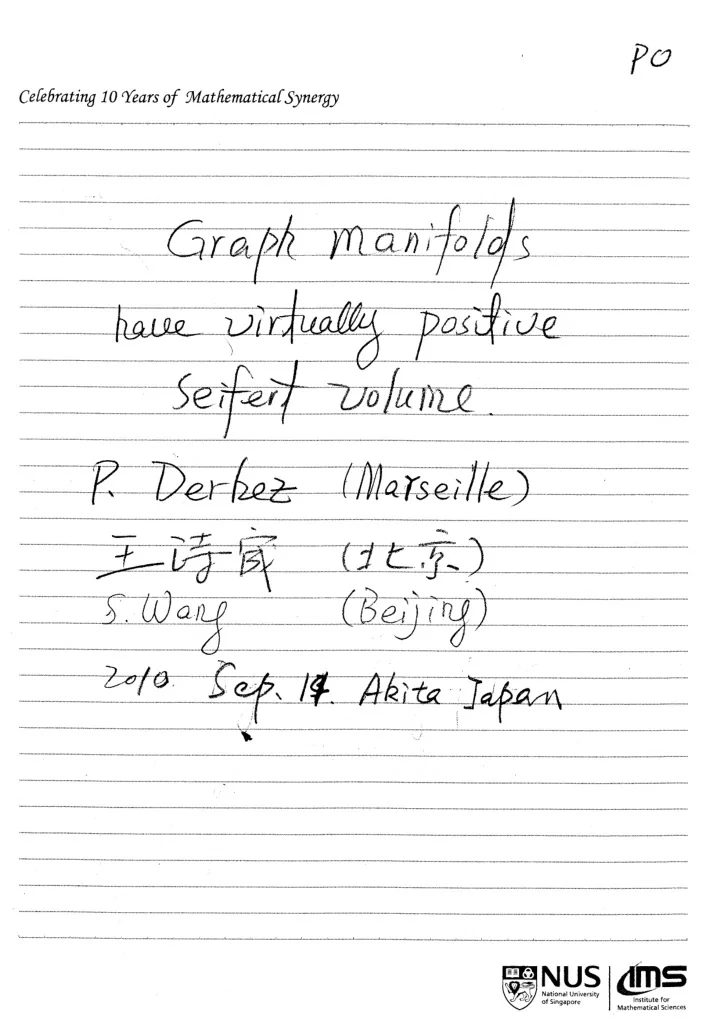 P0
Celebrating 10 Years of Mathematical Synergy
Graph manifolds
have virtually positive
Seifert volume.
P. Derbez (Marseille)
王诗宬 (北京)
S. Wang (Beijing)
2010. Sep. 14. Akita Japan
NUS
National University
of Singapore
IMS
Institute for
Mathematical Sciences